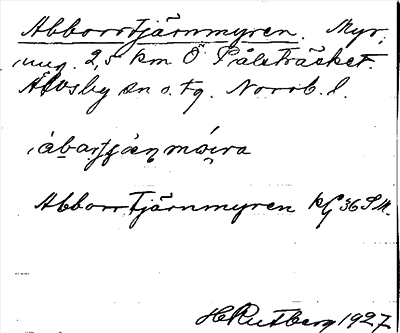 Abborrtjärnmyren. Myr,
ung. 2,5 km Ö Pålsträsket.
Älvsby sn o. tg. Norrb. l.
àbartjän móira
Abborrtjärnmyren kG 36 S M.
H Rutberg 1927